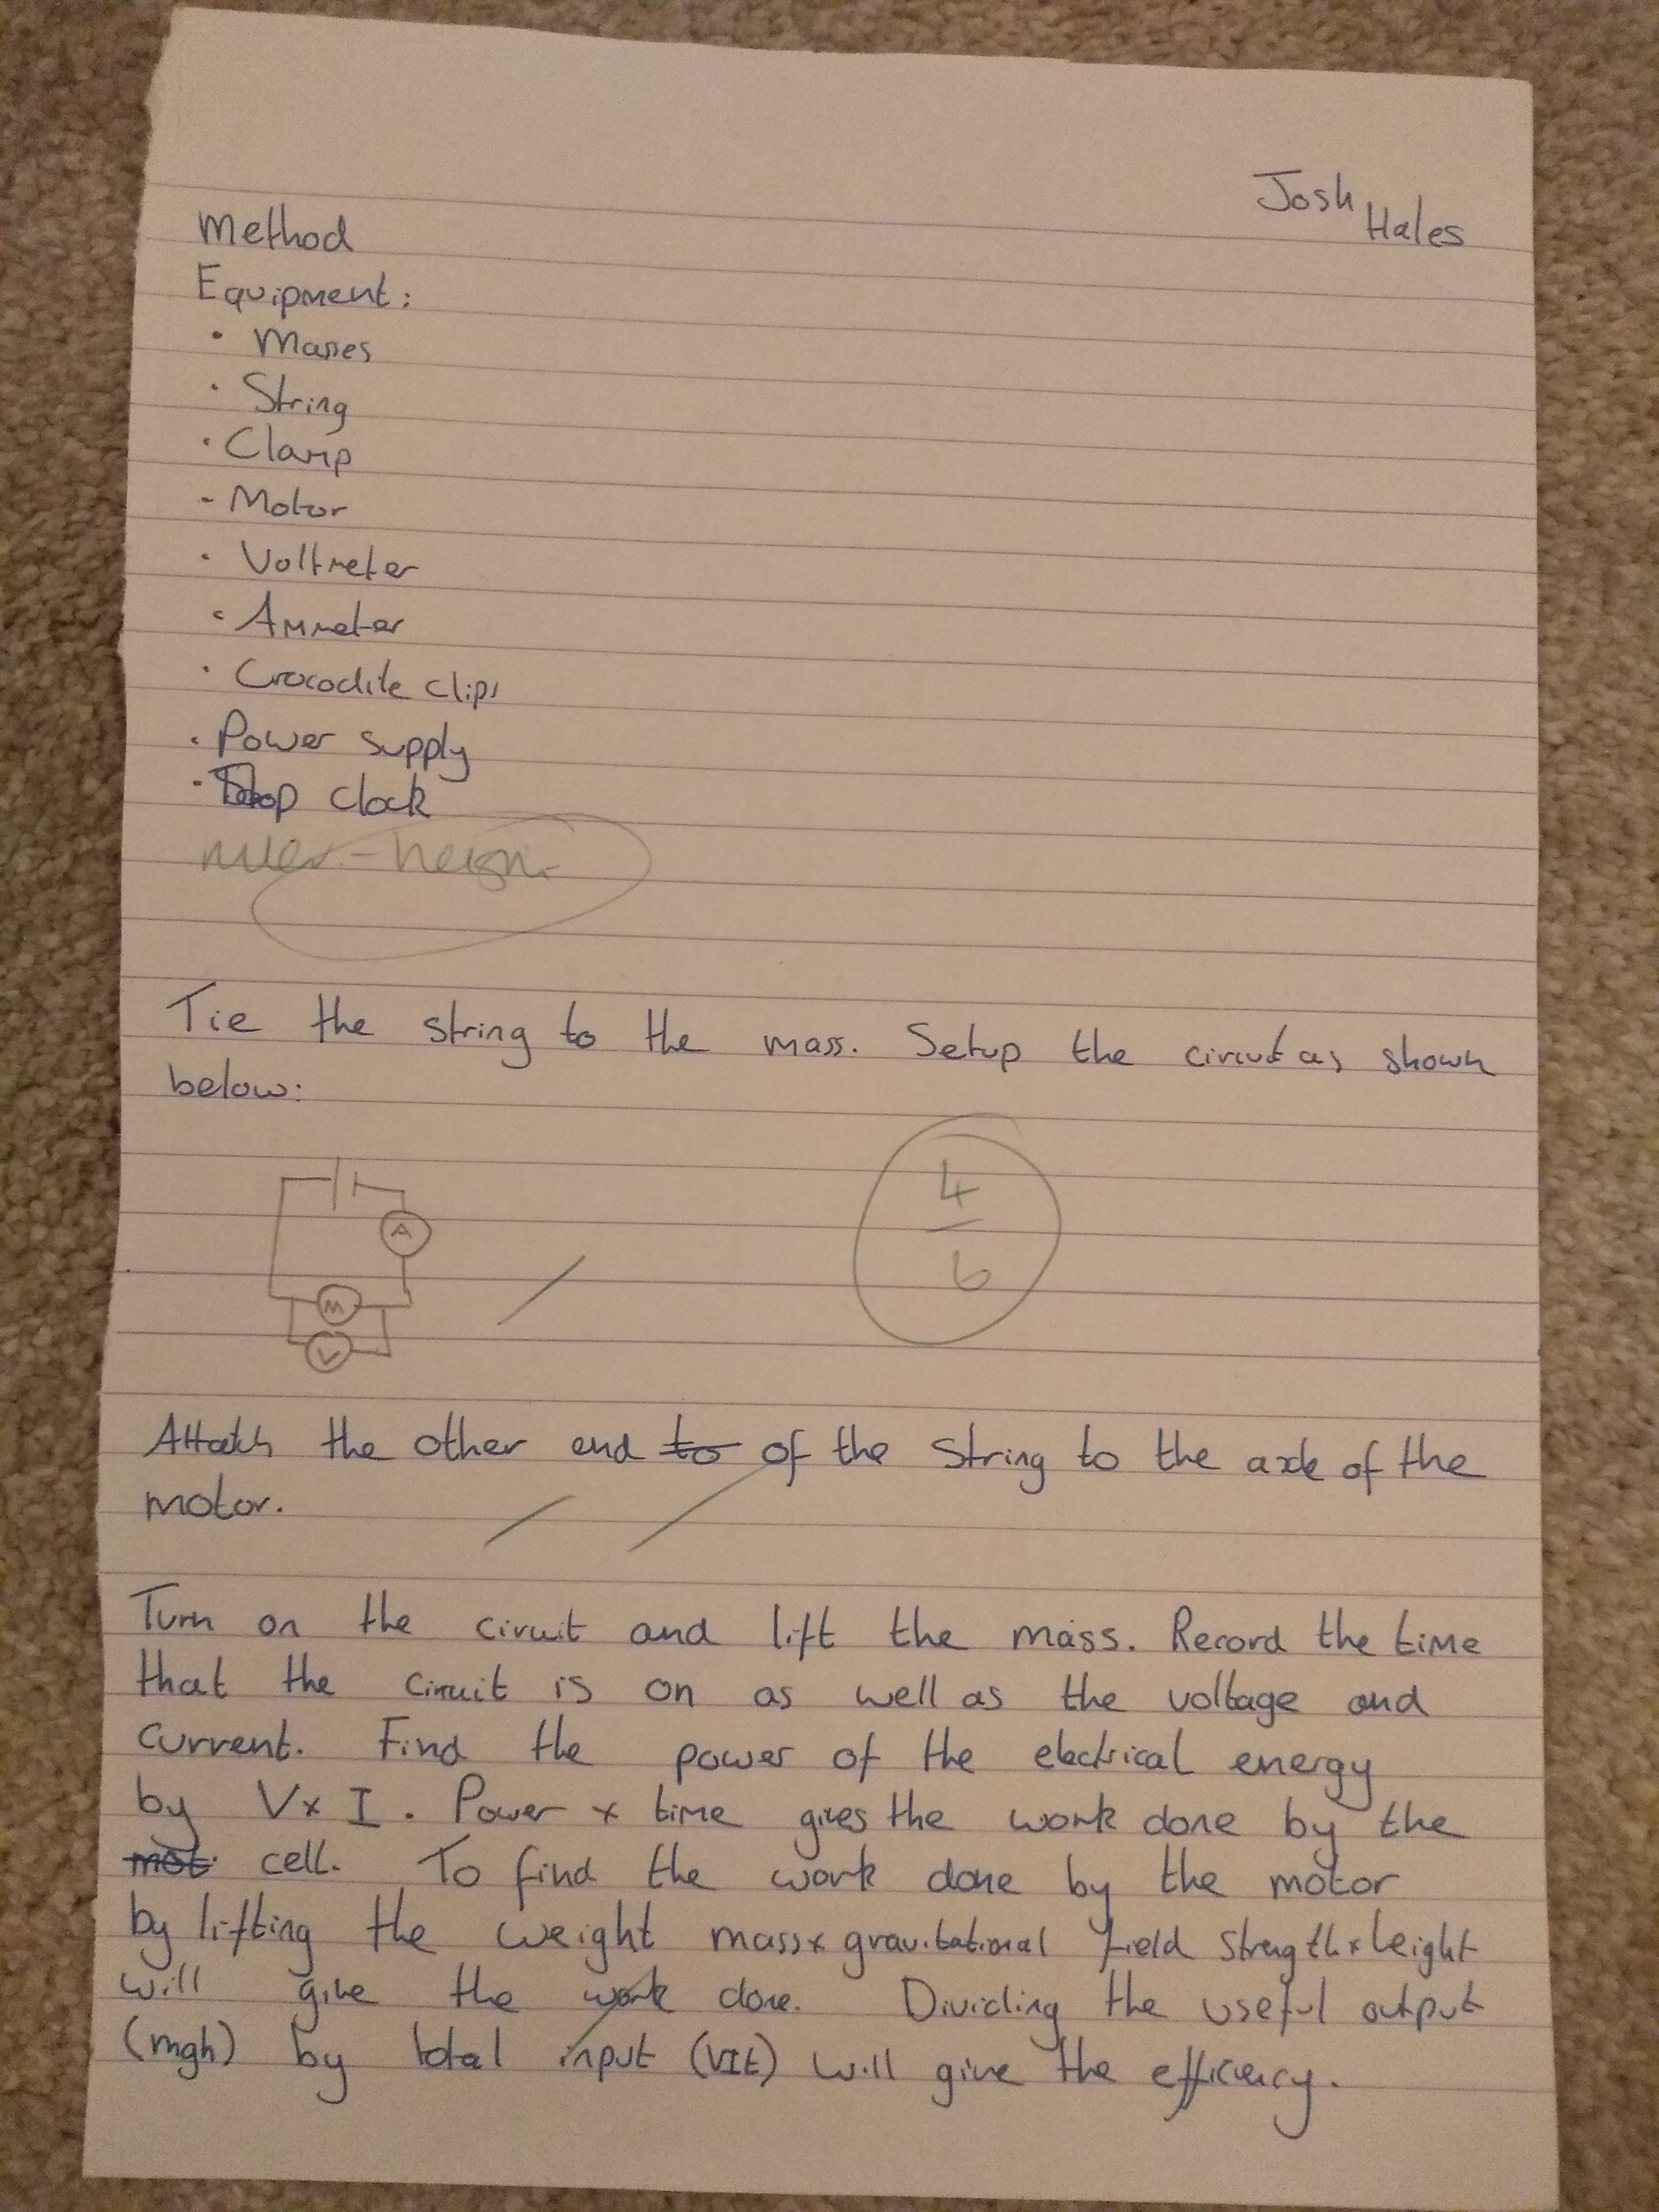 Josh
Hales
Method
Equipment:
· Masses
· String
· Clamp
- Motor
· Voltmeter
· Ammeter
· Crocodile clips
· Power supply
· Stop clock
ruler - height
Tie the string to the mass. Setup the circuit as shown
below:
A
M
V
4
6
Attach the other end to of the string to the axle of the
motor.
Turn on the circuit and lift the mass. Record the time
that the circuit is on as well as the voltage and
current. Find the power of the electrical energy
by V x I. Power x time gives the work done by the
mot cell. To find the work done by the motor
by lifting the weight mass x gravitational field strength x height
will give the work done. Dividing the useful output
(mgh) by total input (VIt) will give the efficiency.